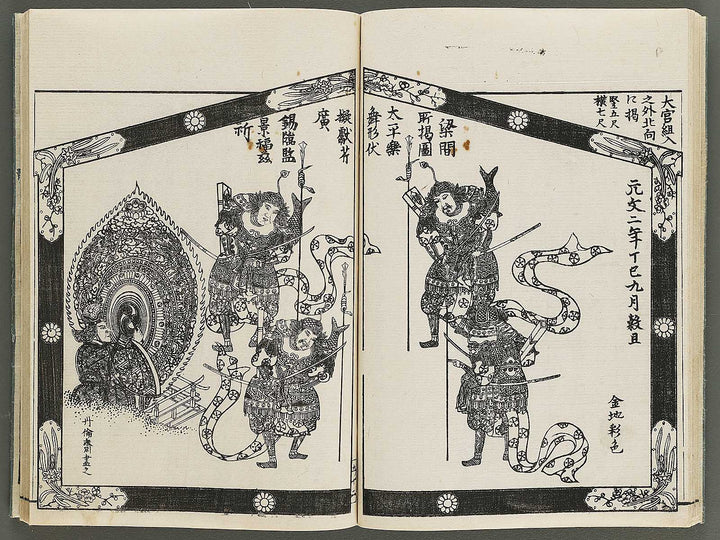 大官組入
之外北向
に掲
竪五尺
横七尺
元文二年丁巳九月穀旦
金地彩色
梁間
所掲圖
太平樂
舞彩伏
擬獻芹
廣
錫臨監
景福玆
祈
丹倫斎画之